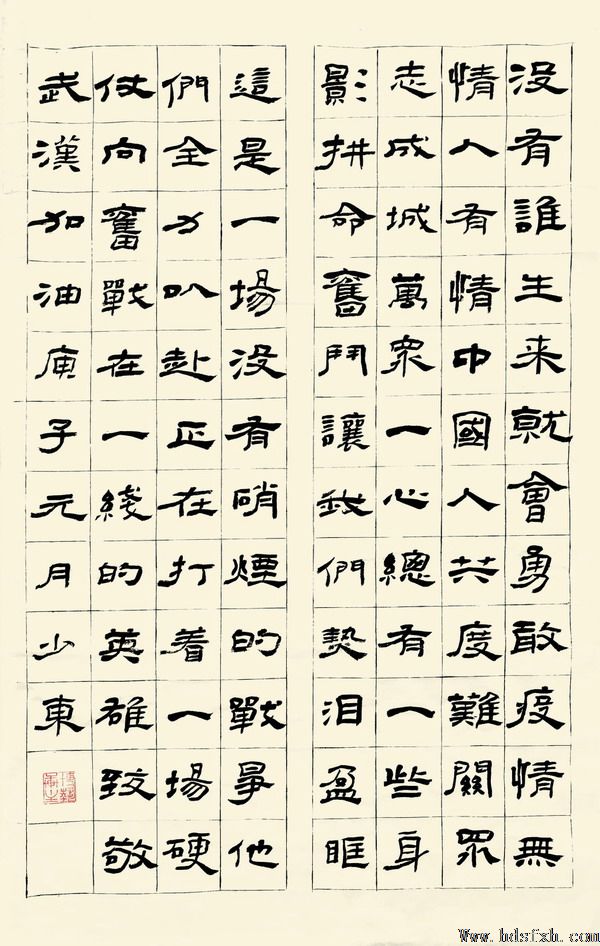 没有誰生来就會勇敢疫情無
情人有情中國人共度難關眾
志成城萬眾一心總有一些身
影拼命奮鬥讓我們熱泪盈眶
這是一場没有硝煙的戰爭他
們全力以赴正在打着一場硬
仗向奮戰在一綫的英雄致敬
武漢加油庚子元月少東
Www.bdsfxh.com